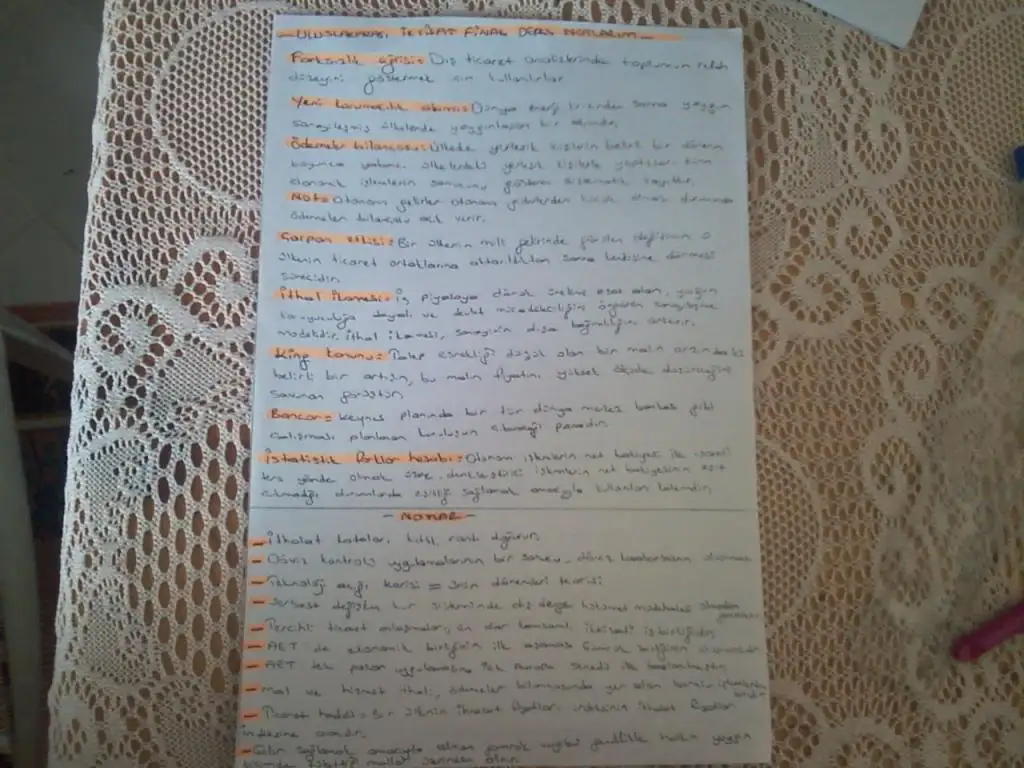 - ULUSLARARASI İKTİSAT FİNAL DERS NOTLARIM -
Farksızlık eğrisi: Dış ticaret analizlerinde toplumun refah
düzeyini göstermek için kullanılırlar
Yeni korumacılık akımı: Dünya enerji krizinden sonra yaygın
sanayileşmiş ülkelerde yaygınlaşan bir akımdır.
Ödemeler bilançosu: Ülkede yerleşik kişilerin belirli bir dönem
boyunca yabancı ülkelerdeki yerleşik kişilerle yaptıkları tüm
ekonomik işlemlerin sonucunu gösteren sistematik kayıttır.
Not: Otonom gelirler otonom giderlerden küçük olması durumunda
ödemeler bilançosu açık verir.
Çarpan etkisi: Bir ülkenin milli gelirinde görülen değişmenin o
ülkenin ticaret ortaklarına aktarıldıktan sonra kendisine dönmesi
sürecidir.
İthal ikamesi: İç piyasaya dönük üretimi esas alan, yoğun
koruyuculuğa dayalı ve devlet müdahaleciliğini öngören sanayileşme
modelidir. İthal ikamesi, sanayinin dışa bağımlılığını artırır.
King kanunu: Talep esnekliği düşük olan bir malın arzındaki
belirli bir artışın, bu malın fiyatını yüksek ölçüde düşüreceğini
savunan görüştür.
Bancor: Keynes planında bir tür dünya merkez bankası gibi
çalışması planlanan kuruluşun çıkaracağı paradır.
İstatistik farklar hesabı: Otonom işlemlerin net bakiyesi ile
ters yönde olmak üzere, denkleştirici işlemlerin net bakiyesinin eşit
çıkmadığı durumlarda eşitliği sağlamak amacıyla kullanılan kalemdir.
- NOTLAR -
- İthalat kotaları, kıtlık rantı doğurur.
- Döviz kontrolü uygulamalarının bir sonucu, döviz karaborsasının oluşması
- Teknoloji açığı teorisi = ürün dönemleri teorisi
- Serbest değişken kur sisteminde dış denge hükümet müdahalesi olmadan
- Tercihli ticaret anlaşmaları, en dar kapsamlı iktisadi işbirliğidir
- AET'de ekonomik birliğin ilk aşaması Gümrük birliğinin
- AET tek pazar uygulamasına Tek Avrupa Senedi ile başlanmıştır
- Mal ve hizmet ithali, ödemeler bilançosunda yer alan
- Ticaret haddi: Bir ülkenin ihracat fiyatları endeksinin ithalat fiyatları
endeksine oranıdır.
- Gelir sağlamak amacıyla alınan gümrük vergileri genellikle halkın yaygın
biçimde tükettiği mallar üzerinden alınır.